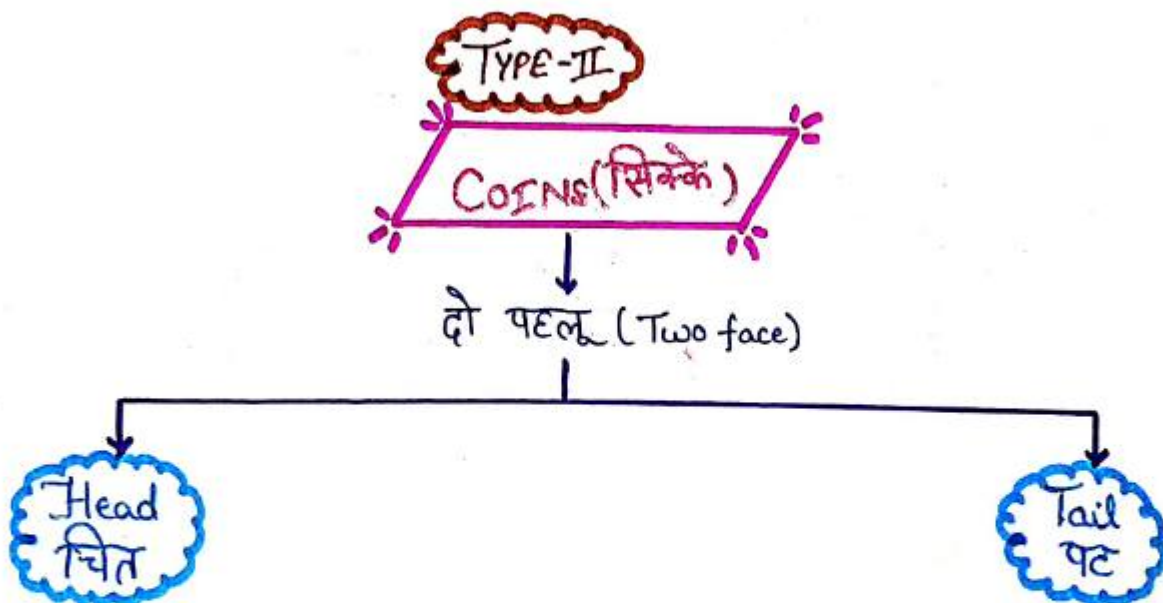 TYPE-II
COINS(सिक्के)
दो पहलू (Two face)
Head
चित
Tail
पट